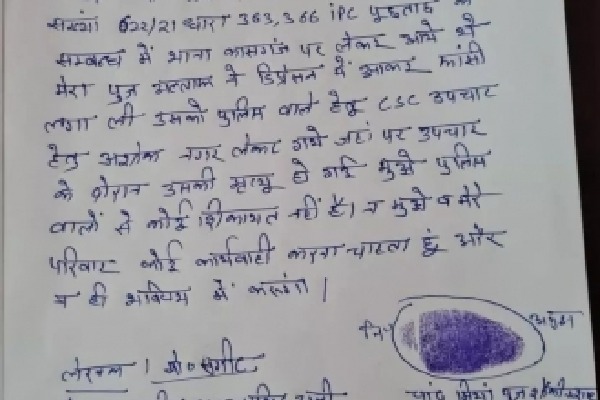 संख्यां 622/21 धारा 363,366 IPC पूछताछ के
सम्बन्ध में थाना कासगंज पर लेकर आये थे
मेरा पुत्र अल्ताफ ने डिप्रेसन में आकर फांसी
लगा ली उसको पुलिस वाले हेतु CSC उपचार
हेतु अशोक नगर लेकर गये जहां पर उपचार
के दौरान उसकी मृत्यु हो गई मुझे पुलिस
वालों से कोई शिकायत नहीं है। न मुझे व मेरे
परिवार कोई कार्यवाही करना चाहता हूं और
न ही भविष्य में करूंगा।
नि० अंगूठा
लेखक । मो० सगीर
चांद मियां पुत्र